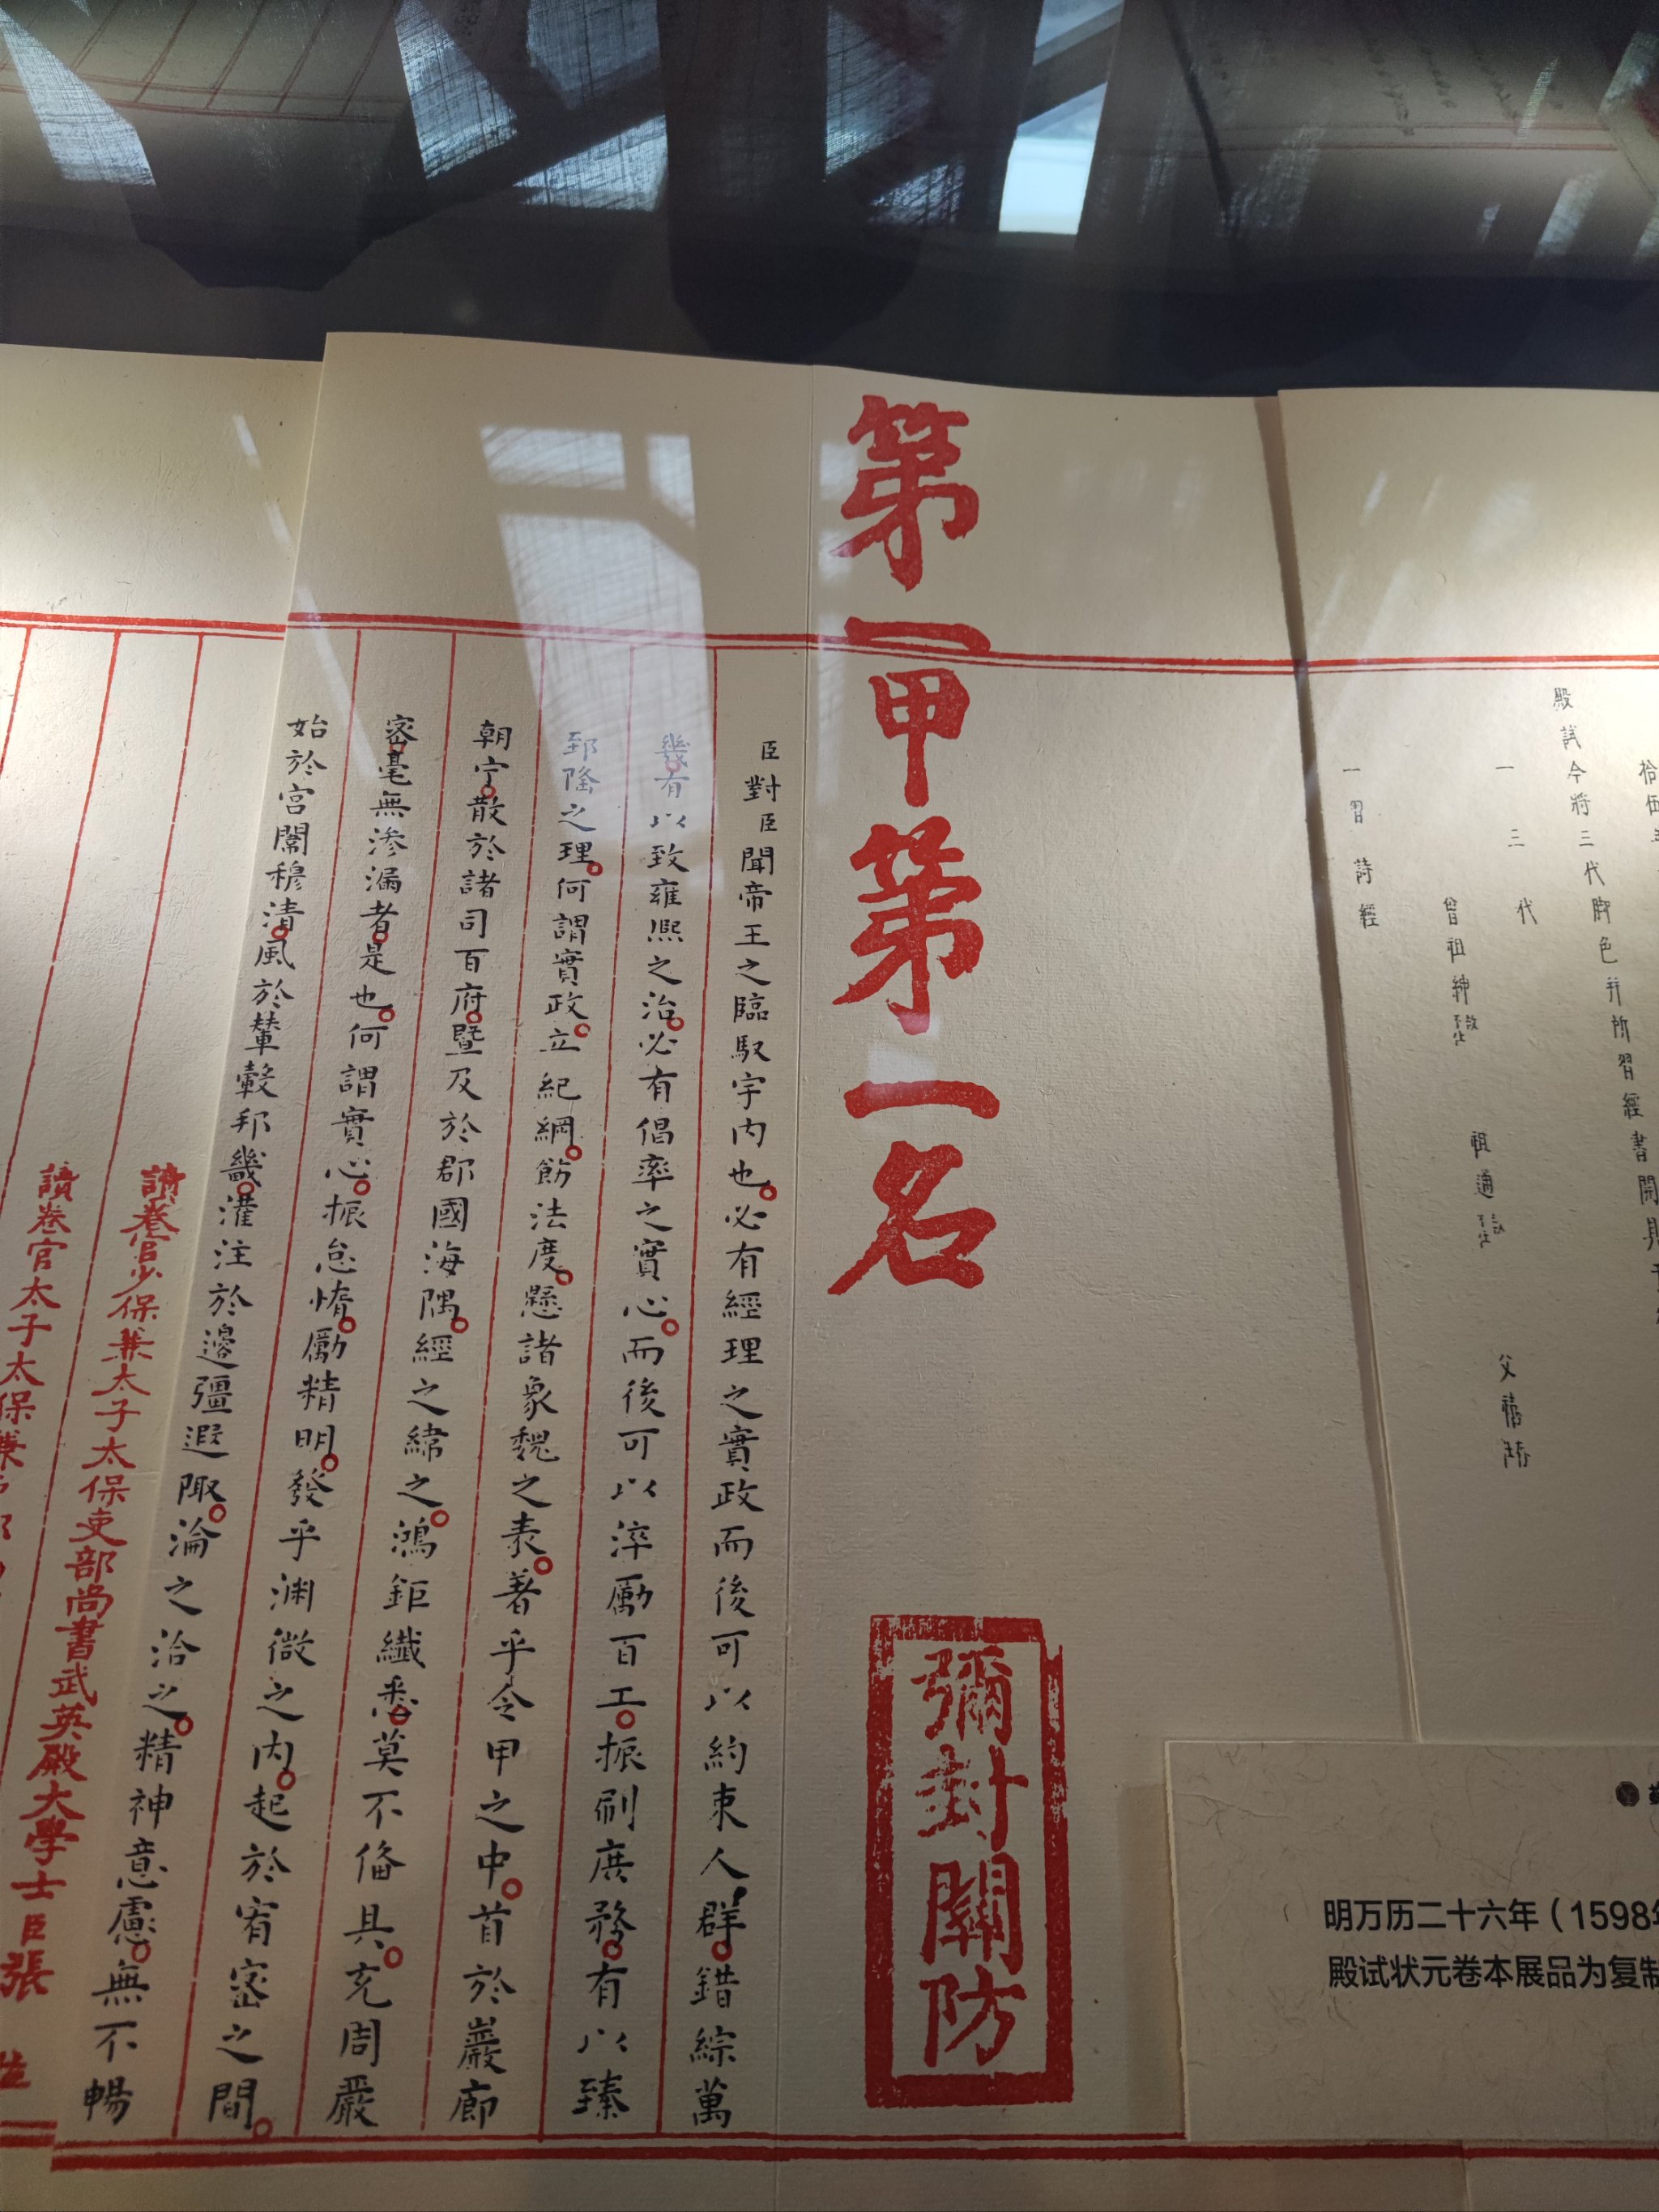 殿試今將三代脚色并所習經書開
一三代
曾祖紳 祖通 父
一習詩經
第一甲第一名
彌封關防
臣對臣聞帝王之臨馭宇内也必有經理之實政而後可以約束人群錯綜萬
幾有以致雍熙之治必有倡率之實心而後可以淬勵百工振刷庶務有以臻
郅隆之理何謂實政立紀綱飭法度懸諸象魏之表著乎令甲之中首於巖廊
朝宁散於諸司百府暨及於郡國海隅經之緯之鴻鉅纖悉莫不俻具充周嚴
密毫無滲漏者是也何謂實心振怠惰勵精明發乎渊微之内起於宥密之間
始於宫闈穆清風於輦轂邦畿灌注於邊彊遐陬淪之洽之精神意慮無不暢
讀卷官少保兼太子太保吏部尚書武英殿大學士臣張
讀卷官太子太保兼
明万历二十六年（1598
殿试状元卷本展品为复制